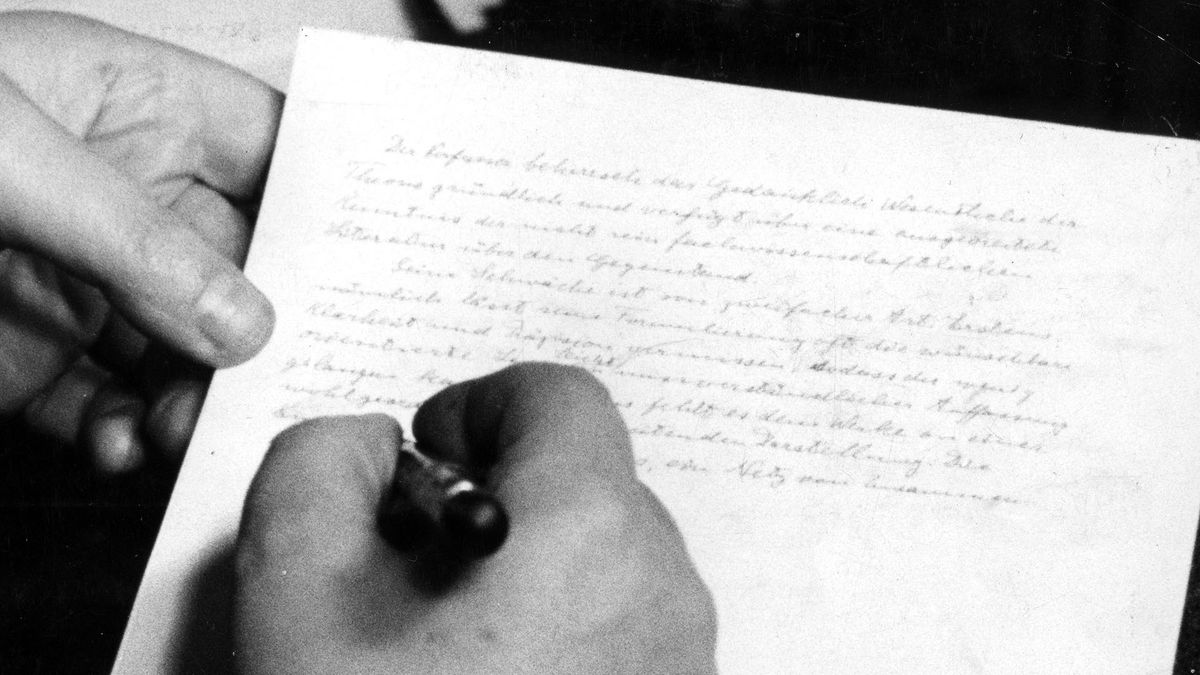 Der Verfasser beherrscht das Gedanklich-Wesentliche der
Theorie gründlich und verfügt über eine ausgebreitete
Kenntnis der nicht rein fachwissenschaftlichen
Literatur über den Gegenstand.
Seine Schwäche ist von zweifacher Art. Erstens
nämlich lässt seine Formulierung oft die wünschbare
Klarheit und Präzision vermissen, sodass der wenig
orientierte Leser nicht
gelangen kann fehlt es dem Werke an einer
Darstellung. Die
ein Netz von Zusammen-